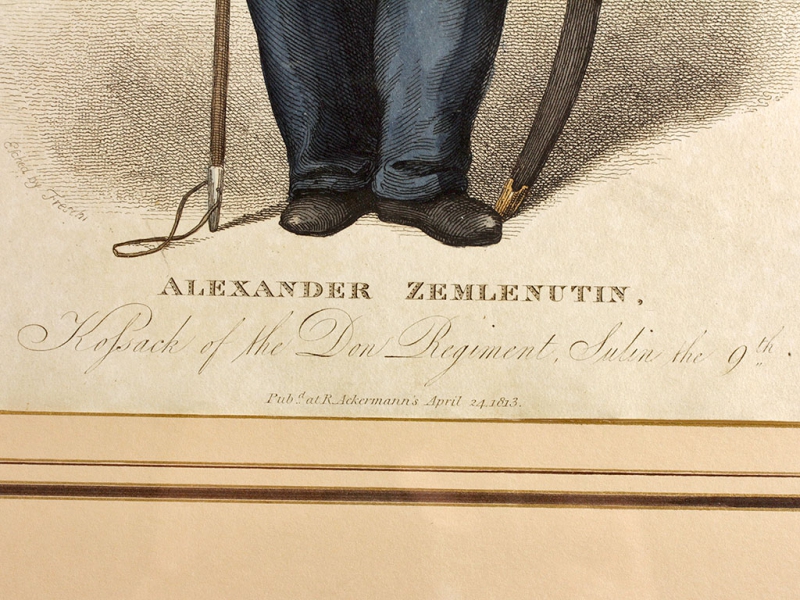 Etched by Treschi
ALEXANDER ZEMLENUTIN,
Koſsack of the Don Regiment, Sulin the 9th.
Pub.d at R. Ackermann's April 24, 1813.